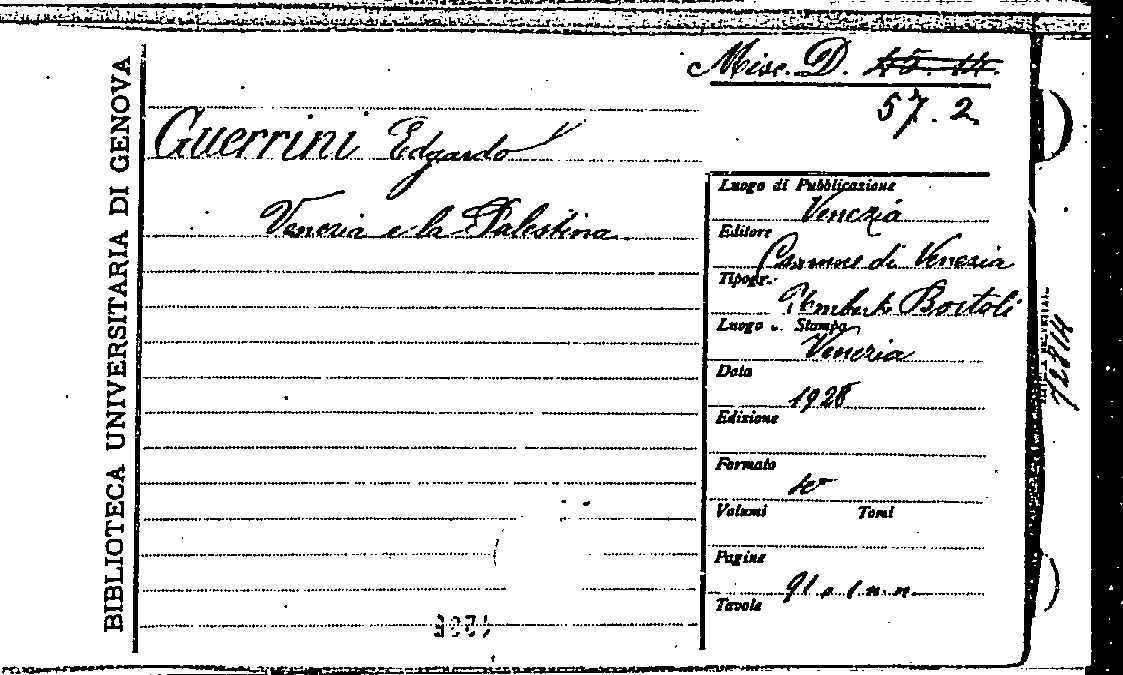 BIBLIOTECA UNIVERSITARIA DI GENOVA
Misc. D. 45. 14.
57. 2
Guerrini Edgardo
Venezia e la Palestina
Luogo di Pubblicazione
Venezia
Editore
Comune di Venezia
Tipogr.
Umberto Bortoli
Luogo Stampa
Venezia
Data
1928
Edizione
Formato
Volumi Tomi
Pagine
91 e 1 n. n.
Tavole